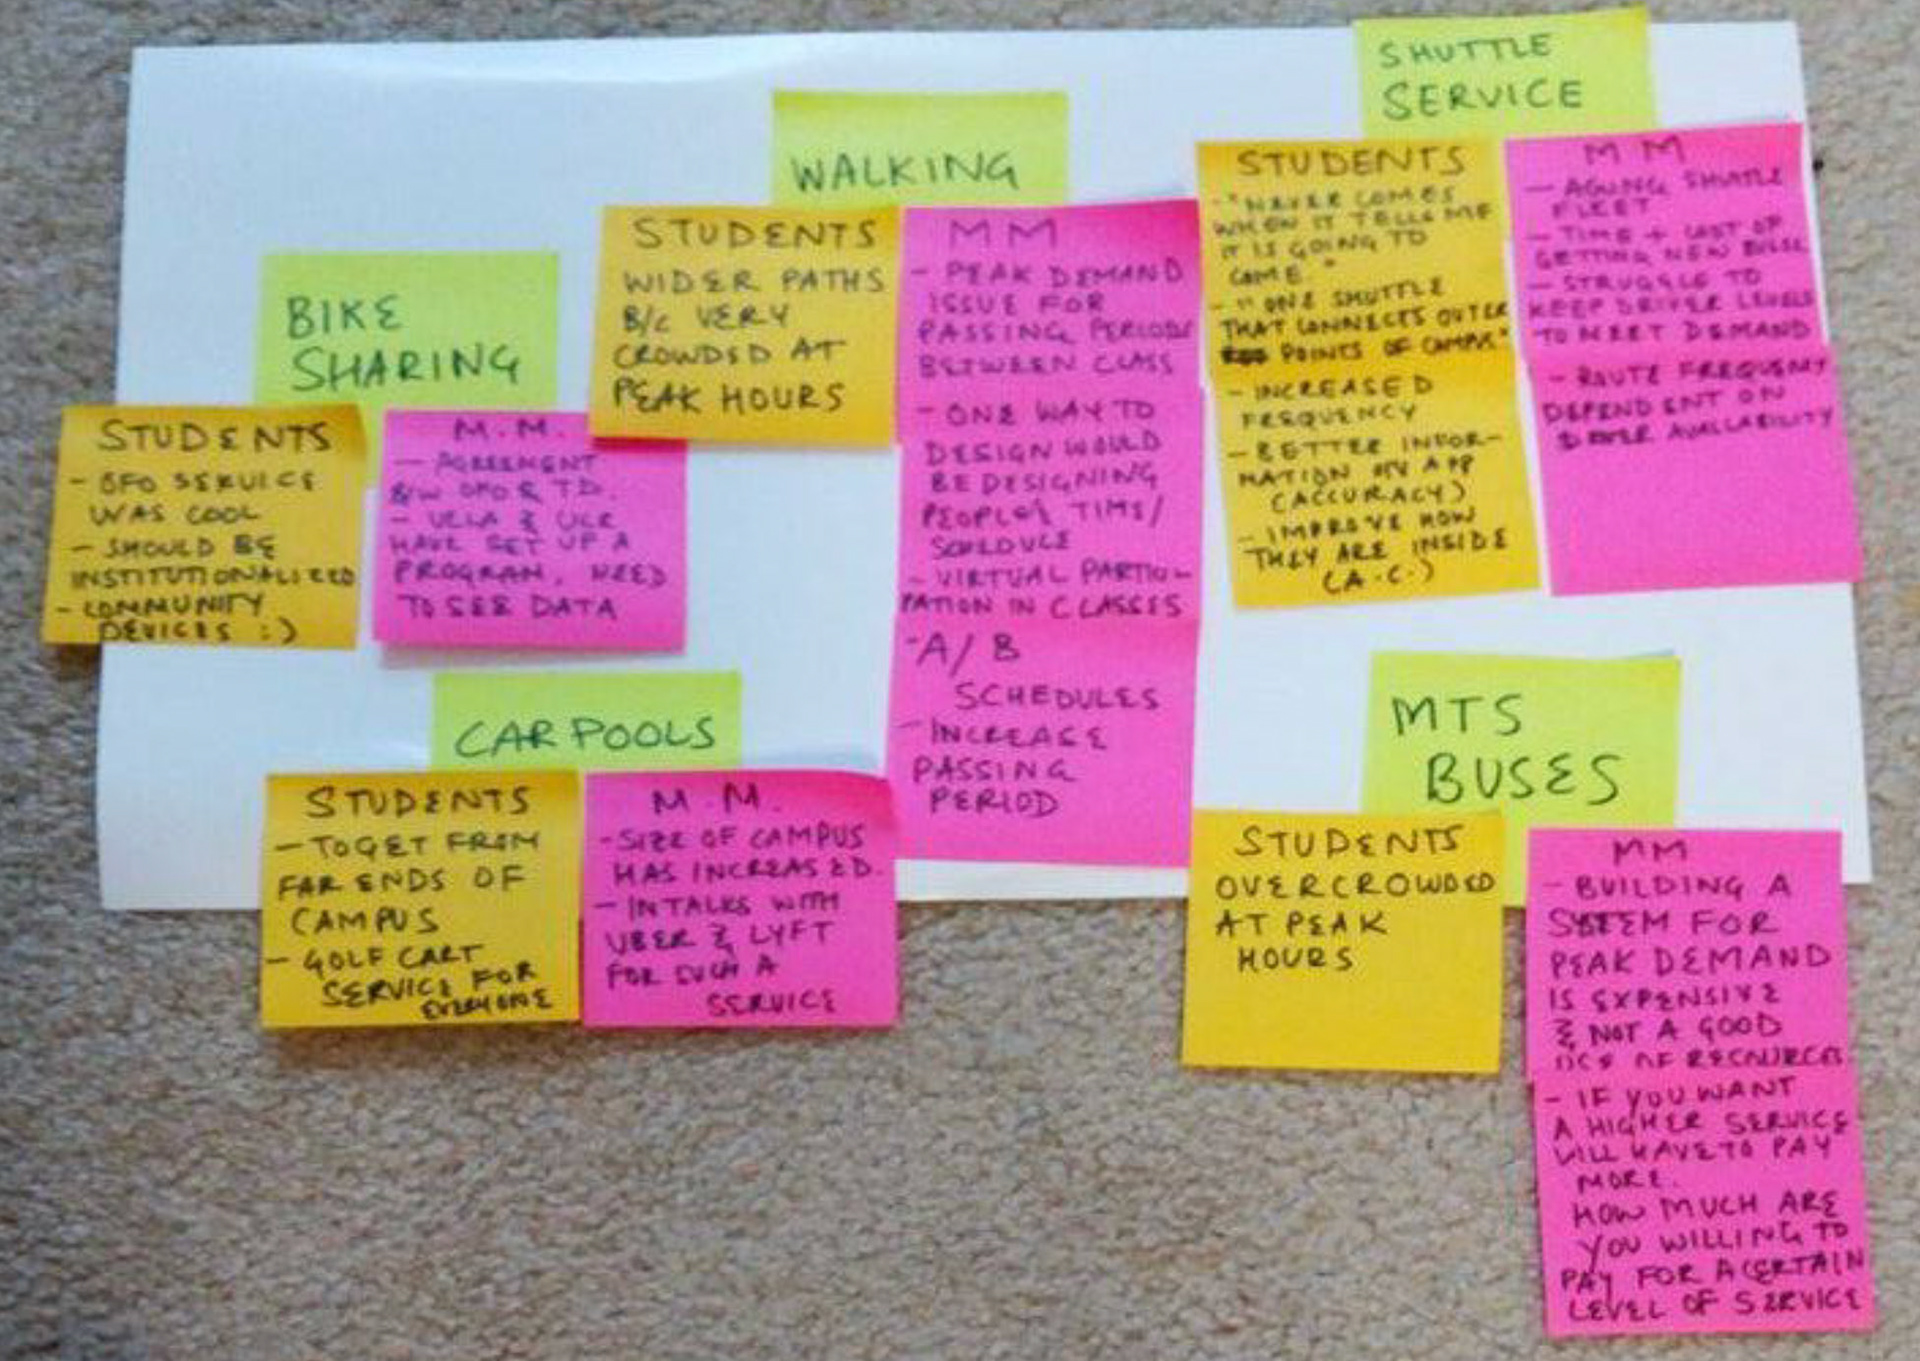 BIKE
SHARING
STUDENTS
- OFO SERVICE
WAS COOL
- SHOULD BE
INSTITUTIONALIZED
- COMMUNITY
DEVICES :)
M.M.
- AGREEMENT
B/W OFO & T.D.
- UCLA & UCR
HAVE SET UP A
PROGRAM. NEED
TO SEE DATA
WALKING
STUDENTS
WIDER PATHS
B/C VERY
CROWDED AT
PEAK HOURS
MM
- PEAK DEMAND
ISSUE FOR
PASSING PERIODS
BETWEEN CLASS
- ONE WAY TO
DESIGN WOULD
BE DESIGNING
PEOPLE'S TIME/
SCHEDULE
- VIRTUAL PARTICI-
PATION IN CLASSES
- A/B
SCHEDULES
- INCREASE
PASSING
PERIOD
SHUTTLE
SERVICE
STUDENTS
- "NEVER COMES
WHEN IT TELLS ME
IT IS GOING TO
COME"
- "ONE SHUTTLE
THAT CONNECTS OUTER
POINTS OF CAMPUS"
- INCREASED
FREQUENCY
- BETTER INFOR-
MATION ON APP
(ACCURACY)
- IMPROVE HOW
THEY ARE INSIDE
(A.C.)
MM
- AGING SHUTTLE
FLEET
- TIME + COST OF
GETTING NEW BUSES
- STRUGGLE TO
KEEP DRIVER LEVELS
TO MEET DEMAND
- ROUTE FREQUENCY
DEPENDENT ON
DRIVER AVAILABILITY
CAR POOLS
STUDENTS
- TO GET FROM
FAR ENDS OF
CAMPUS
- GOLF CART
SERVICE FOR
EVERYONE
M.M.
- SIZE OF CAMPUS
HAS INCREASED.
- IN TALKS WITH
UBER & LYFT
FOR SUCH A
SERVICE
MTS
BUSES
STUDENTS
OVERCROWDED
AT PEAK
HOURS
MM
- BUILDING A
SYSTEM FOR
PEAK DEMAND
IS EXPENSIVE
& NOT A GOOD
USE OF RESOURCES.
- IF YOU WANT
A HIGHER SERVICE
WILL HAVE TO PAY
MORE.
HOW MUCH ARE
YOU WILLING TO
PAY FOR A CERTAIN
LEVEL OF SERVICE